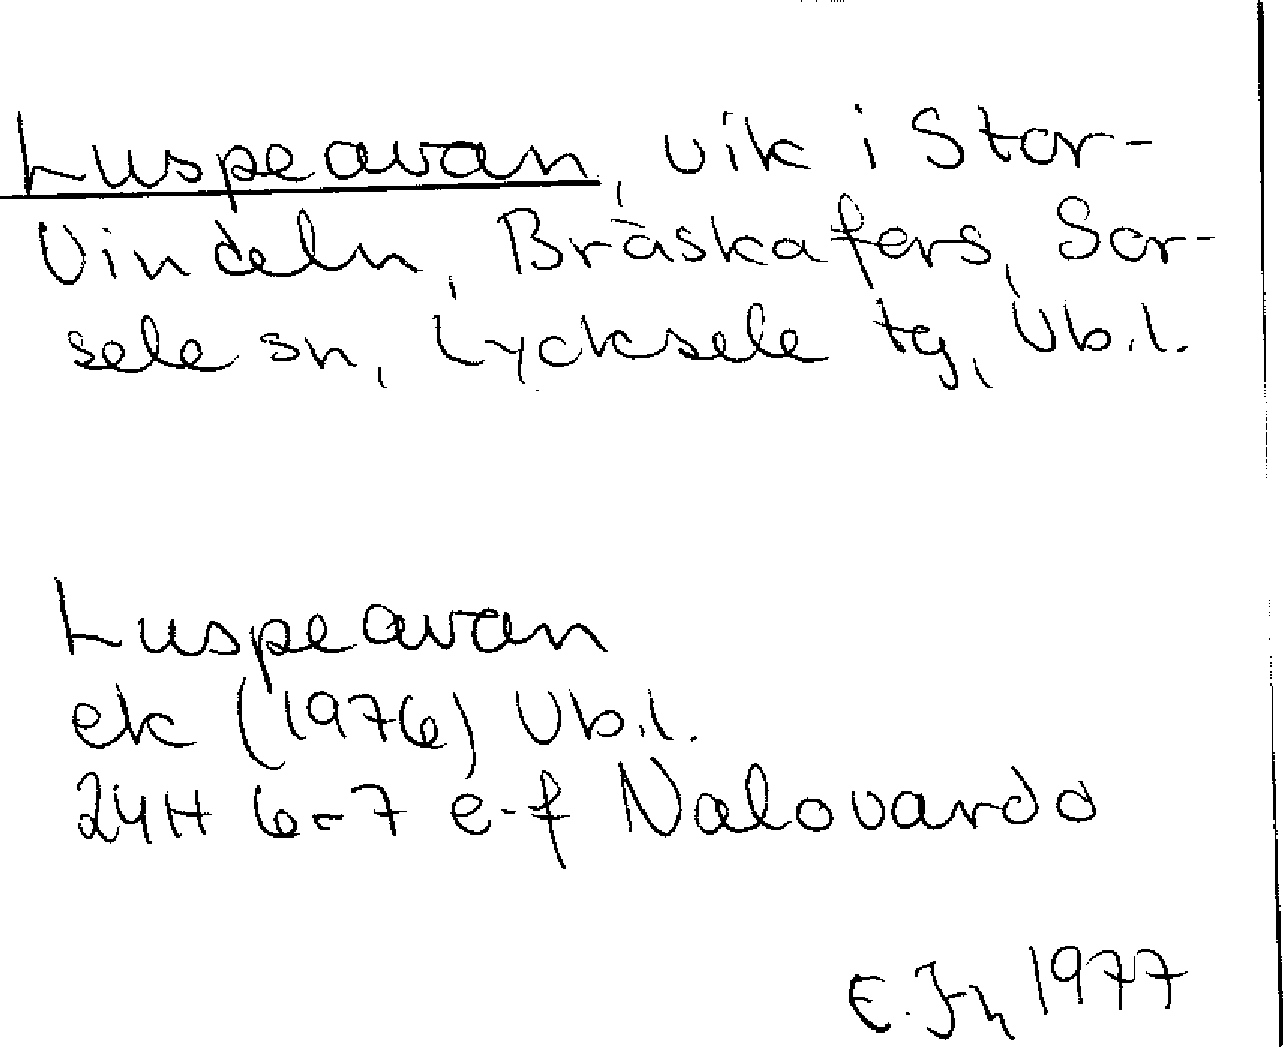 Luspeavan, vik i Stor-
Vindeln, Bräskafors, Sor-
sele sn, Lycksele tg, Vb.l.
Luspeavan
ek (1976) Vb.l.
24H 6-7 e-f Nalovardo
E. 1977